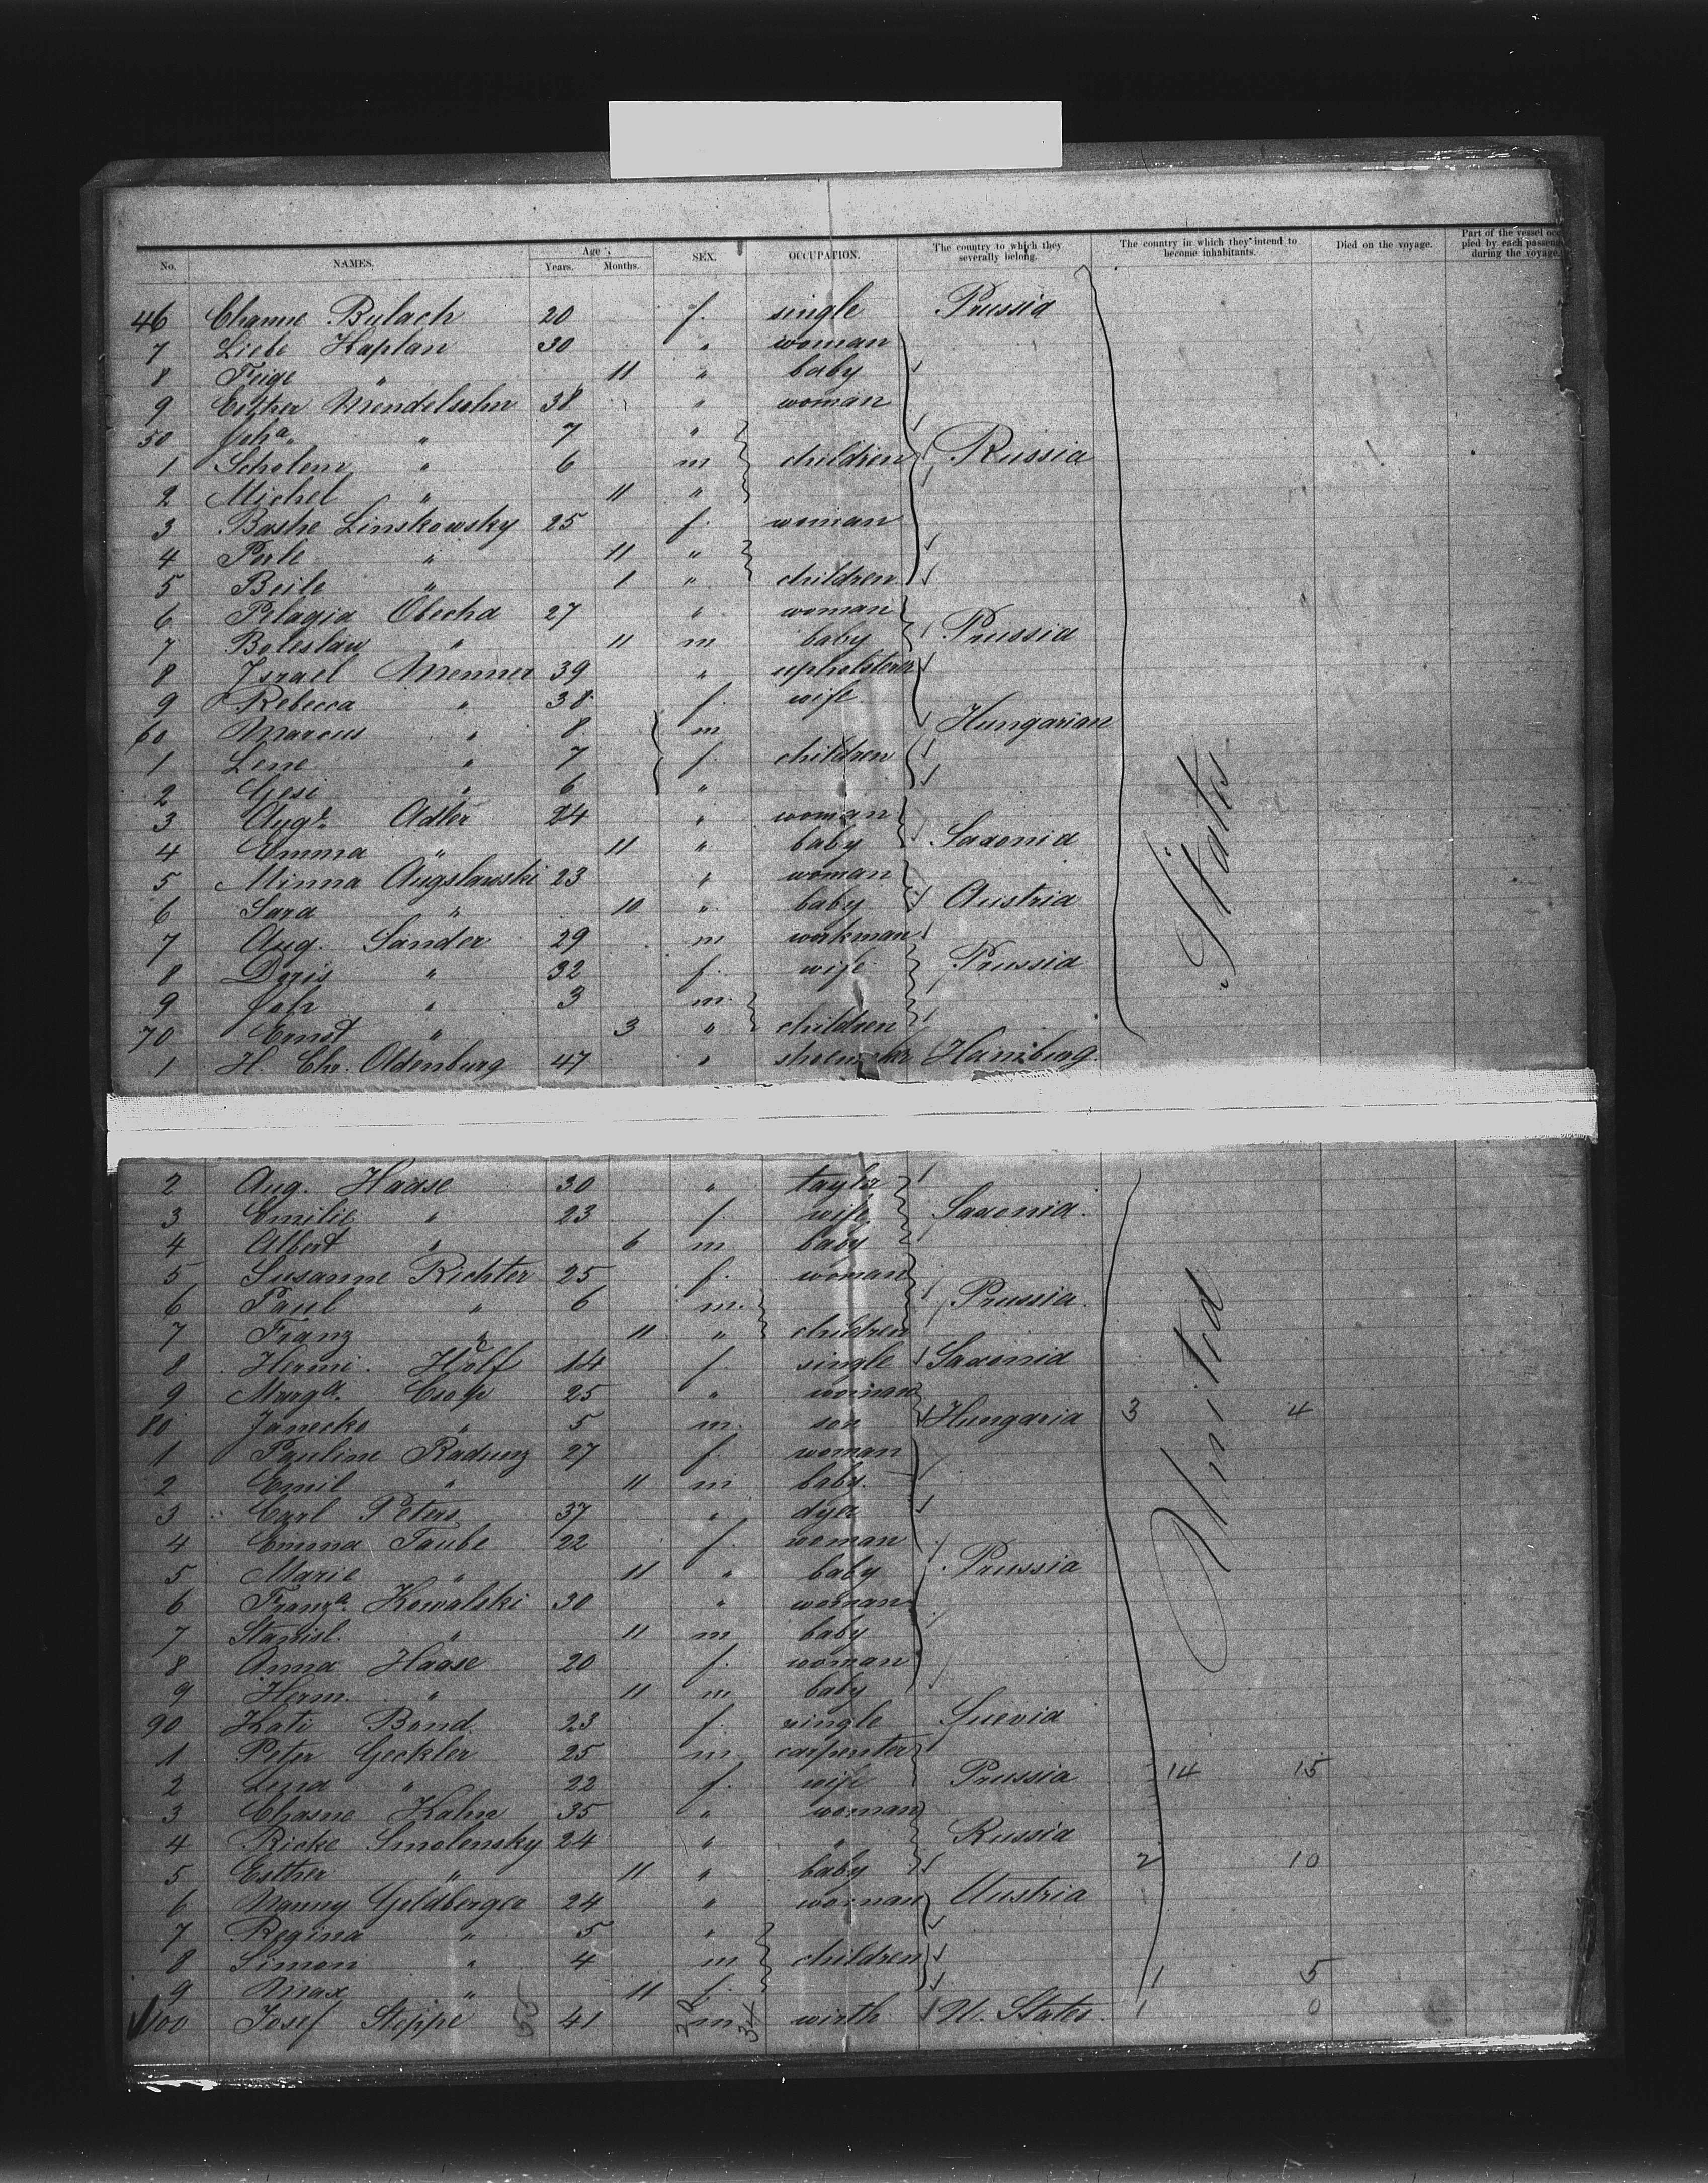 No. NAMES. Age; Years. Months. SEX. OCCUPATION. The country to which they severally belong. The country in which they intend to become inhabitants. Died on the voyage. Part of the vessel occupied by each passenger during the voyage.
46 Channe Bulach 20 f. single Prussia
7 Liebe Kaplan 30 " woman
8 Feige " 11 " baby
9 Esther Mendelsohn 38 " woman
50 Joha. " 7 "
1 Scholem " 6 m children Russia
2 Michel " 11 "
3 Bashe Linskowsky 25 f. woman
4 Perle " 11 "
5 Beile " 1 " children
6 Pelagia Obecha 27 " woman
7 Boleslaw " 11 m baby Prussia
8 Israel Menner 39 " upholsterer
9 Rebecca " 38 f. wife
60 Marcus " 8 m Hungarian
1 Lene " 7 f. children
2 Gesi " 6 "
3 Augte. Adler 24 " woman
4 Emma " 11 " baby Saxonia
5 Minna Augslawski 23 " woman
6 Sara " 10 " baby Austria
7 Aug. Sander 29 m workman
8 Doris " 32 f. wife Prussia
9 Joh " 3 m.
70 Ernst " 3 " children
1 H. Chr. Oldenburg 47 " Hamburg.
2 Aug. Haase 30 " taylor
3 Emilie " 23 f. wife Saxonia.
4 Albert " 6 m baby
5 Susanne Richter 25 f. woman
6 Paul " 6 m. Prussia.
7 Franz " 11 " children
8 Hermi. Wolf 14 f single Saxonia
9 Marga. 25 " woman
80 Janecko " 5 m. son Hungaria 3 4
1 Pauline Radunz 27 f. woman
2 Emil " 11 m baby.
3 Carl Peters 37 " dyer
4 Emma Taube 22 f. woman
5 Marie " 11 " baby Prussia
6 Franza. Kowalski 30 " woman
7 Stanisl. " 11 m baby
8 Anna Haase 20 f. woman
9 Herm. " 11 m baby
90 Kati Bond 23 f. single Suevia
1 Peter Geckler 25 m carpenter
2 Lina " 22 f. wife Prussia 14 15
3 Chasne Kahn 35 " woman
4 Ricke Smolensky 24 " " Russia
5 Esther " 11 " baby 2 10
6 Nanny Goldberger 24 " woman Austria
7 Regina " 5 "
8 Simon " 4 m children
9 Max " 11 f. 1 5
100 Josef Steppe 55 41 m 34 wirth U. States. 1 0
United States